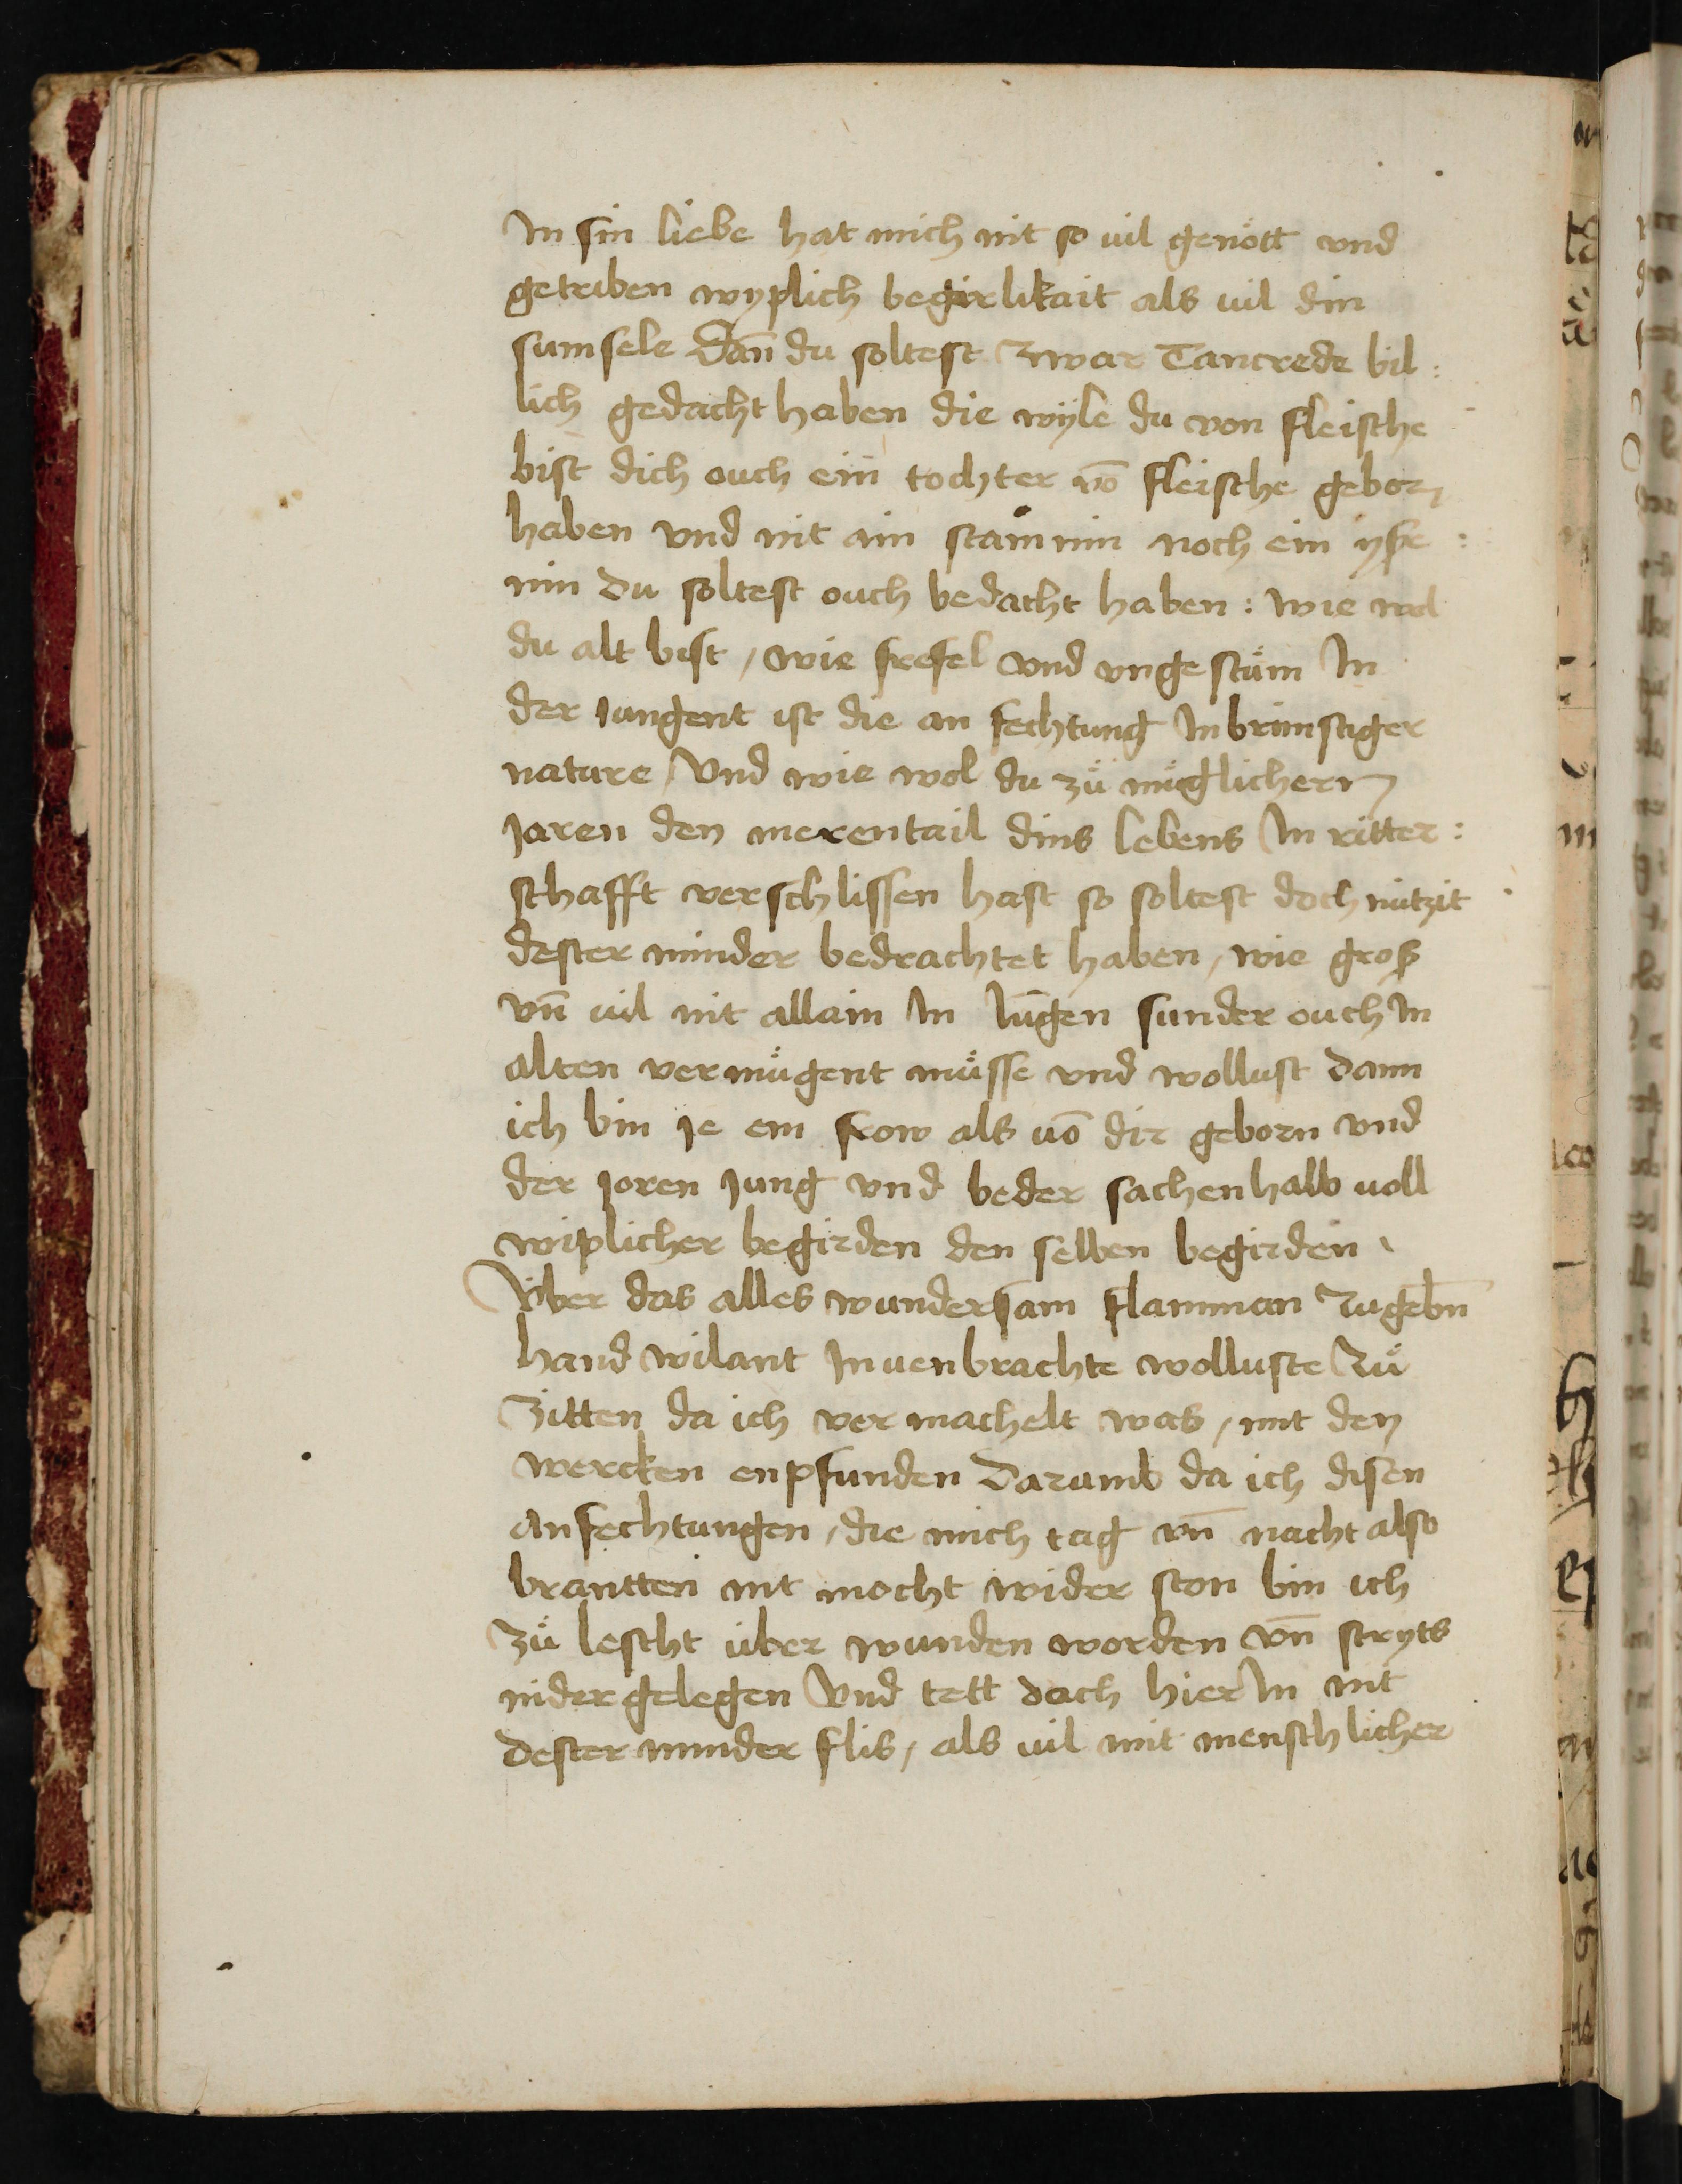 In sin liebe hat mich nit so uil genött vnd
getriben wyplich begirlikait als uil din
sumsele Dañ du soltest zwar Tancrede bil:
lich gedacht haben die wyle du von fleische
bist dich ouch ein tochter vō fleische geborn
haben vnd nit ain stainnin noch ein yse:
nin Du soltest ouch bedacht haben : wie wol
du alt bist / wie frefel vnd vngestüm In
der Iungent ist die an fechtung In brünstiger
nature / Vnd wie wol du zů müglichern
Jaren den merentail dins lebens In ritter:
schafft verschlissen hast so soltest doch nützit
dester minder bedrachtet haben / wie groß
vn̄ uil nit allain In Iūgen sunder ouch In
alten vermügent müsse vnd wollust Dann
ich bin Je ein frow als vō dir geborn vnd
der Joren Jung vnd beder sachenhalb voll
wiplicher begirden den selben begirden
Über das alles wundersam flamman zugebn̄
hand wilant Inuenbrachte wolluste zů
zitten da ich vermachelt was / mit den
wercken enpfunden Darumb da ich disen
anfechtungen / die mich tag vn̄ nacht also
brantten nit mocht wider ston bin ich
zů lescht über wunden worden vn̄ stryts
nider gelegen Vnd tett doch hier In nit
dester minder flis / als uil mit menschlicher